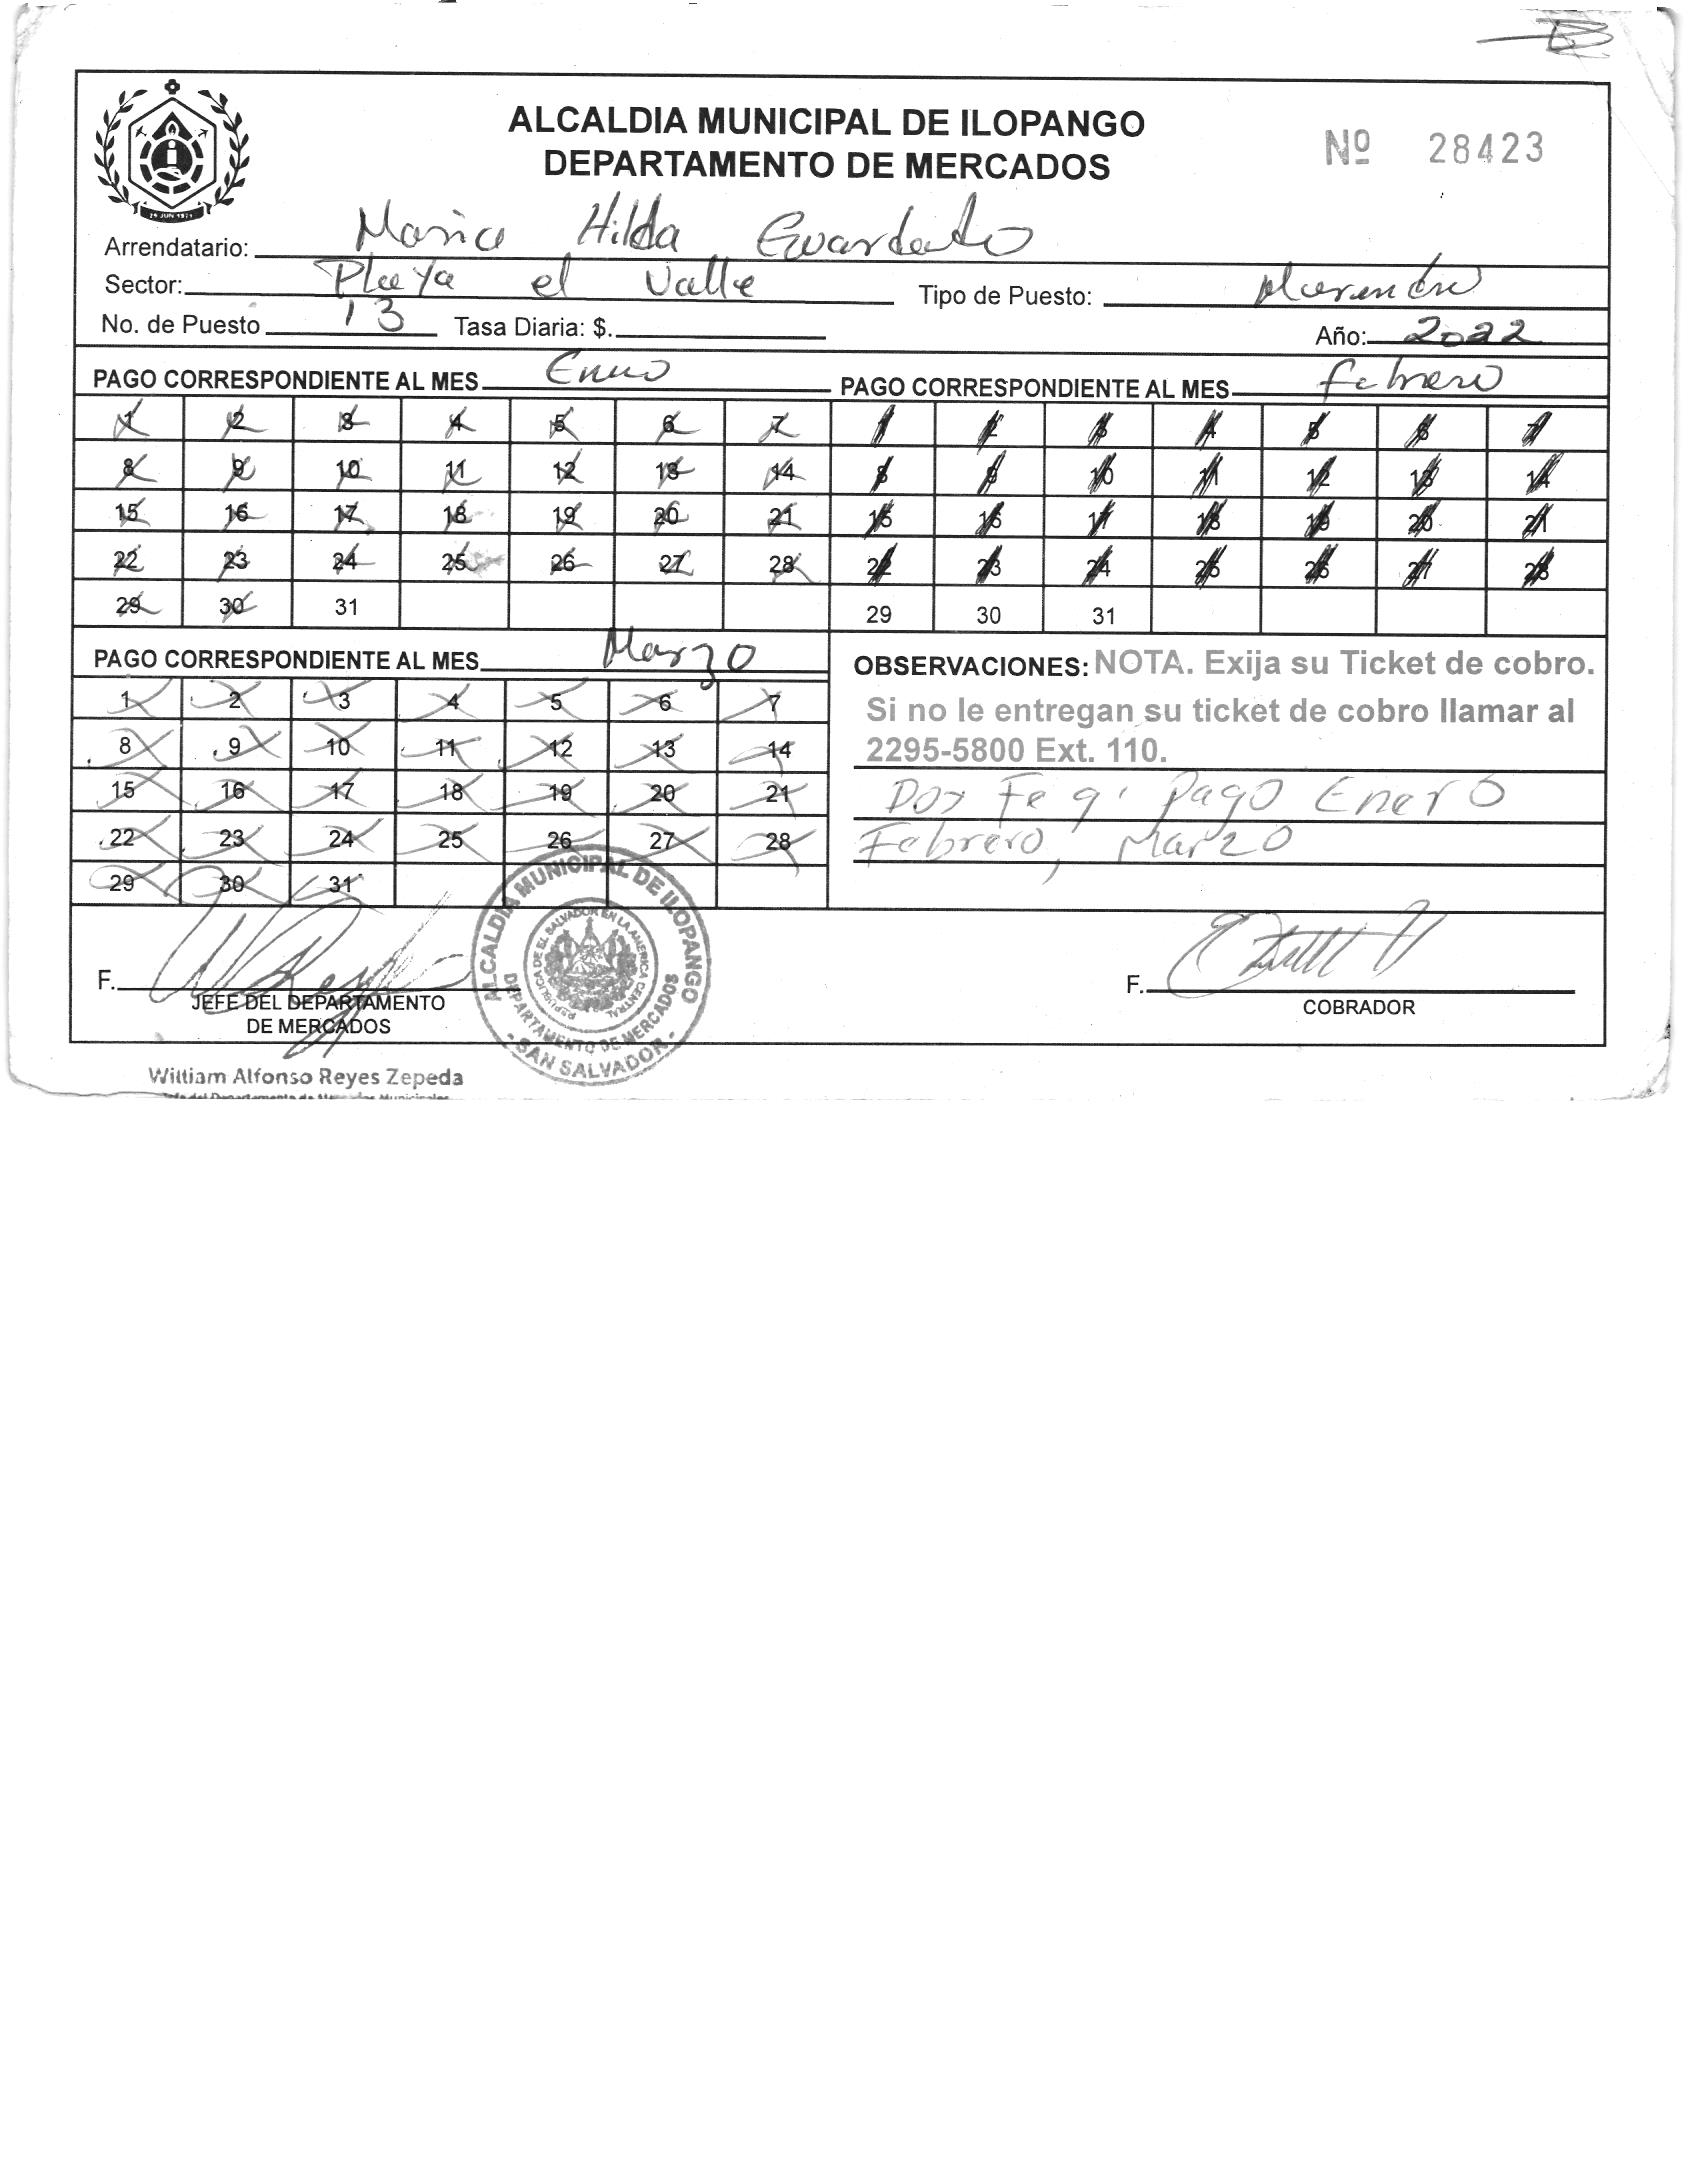 ALCALDIA MUNICIPAL DE ILOPANGO
DEPARTAMENTO DE MERCADOS
Nº 28423
25 JUN 1971
Arrendatario: Maria Hilda Guardado
Sector: Playa el Valle Tipo de Puesto:
No. de Puesto 13 Tasa Diaria: $. Año: 2022
PAGO CORRESPONDIENTE AL MES Enero
1 2 3 4 5 6 7
8 9 10 11 12 13 14
15 16 17 18 19 20 21
22 23 24 25 26 27 28
29 30 31
PAGO CORRESPONDIENTE AL MES Febrero
1 2 3 4 5 6 7
8 9 10 11 12 13 14
15 16 17 18 19 20 21
22 23 24 25 26 27 28
29 30 31
PAGO CORRESPONDIENTE AL MES Marzo
1 2 3 4 5 6 7
8 9 10 11 12 13 14
15 16 17 18 19 20 21
22 23 24 25 26 27 28
29 30 31
OBSERVACIONES: NOTA. Exija su Ticket de cobro.
Si no le entregan su ticket de cobro llamar al
2295-5800 Ext. 110.
Doy Fe q' Pago Enero
Febrero, Marzo
F.
JEFE DEL DEPARTAMENTO
DE MERCADOS
ALCALDIA MUNICIPAL DE ILOPANGO
REPUBLICA DE EL SALVADOR EN LA AMERICA CENTRAL
DEPARTAMENTO DE MERCADOS
- SAN SALVADOR -
F.
COBRADOR
William Alfonso Reyes Zepeda
Jefe del Departamento de Mercados Municipales